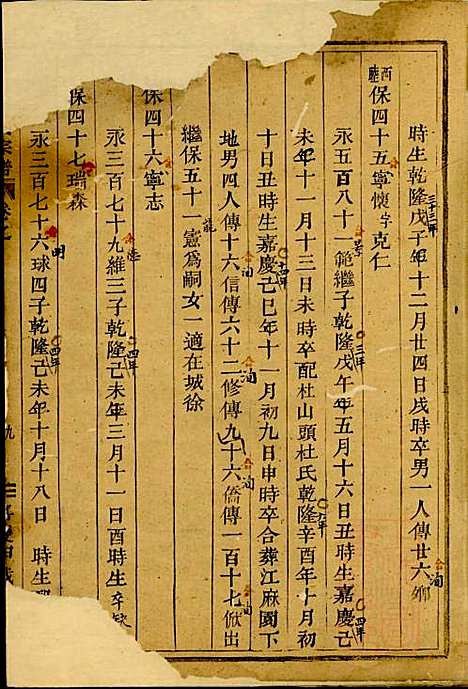 時生乾隆戊子年十二月廿四日戌時卒男一人傳廿六鄉
三十三年
西畦
保四十五寧懷字克仁
永五百八十一範繼子乾隆戊午年五月十六日丑時生嘉慶己
三年
四年
未年十一月十三日未時卒配杜山頭杜氏乾隆辛酉年十月初
六年
十日丑時生嘉慶己巳年十一月初九日申時卒合葬江麻園下
十四年
地男四人傳十六信傳六十二修傳九十六僑傳一百十七俽出
繼保五十一憲為嗣女一適在城徐
保四十六寧志
永三百七十九維三子乾隆己未年三月十一日酉時生卒缺
四年
保四十七瑞森
永三百七十六球四子乾隆己未年十月十八日 時生
四年
宗譜
卷之
九